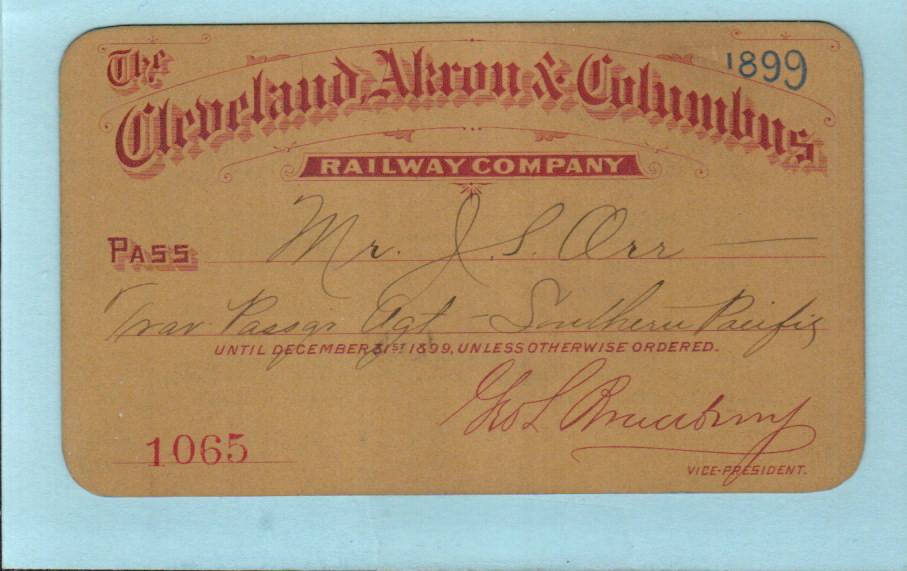 The
1899
Cleveland, Akron & Columbus
RAILWAY COMPANY
PASS Mr. J. S. Orr
Trav Passgr Agt - Southern Pacific
UNTIL DECEMBER 31ST 1899, UNLESS OTHERWISE ORDERED.
Geo L
1065
VICE-PRESIDENT.